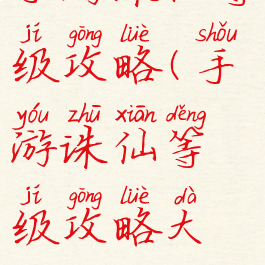 jí gōng lüè shǒu
级攻略(手
yóu zhū xiān děng
游诛仙等
jí gōng lüè dà
级攻略大